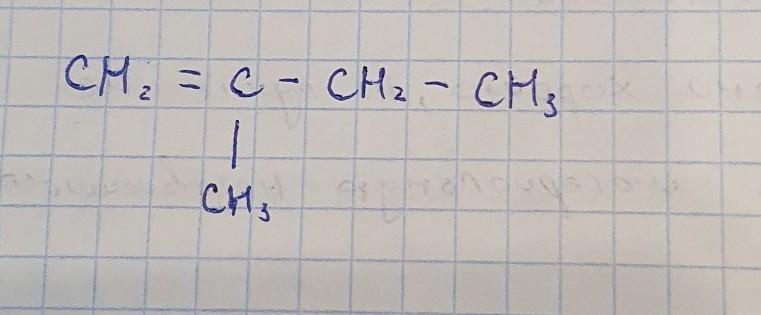 CH₂ = C - CH₂ - CH₃
|
CH₃